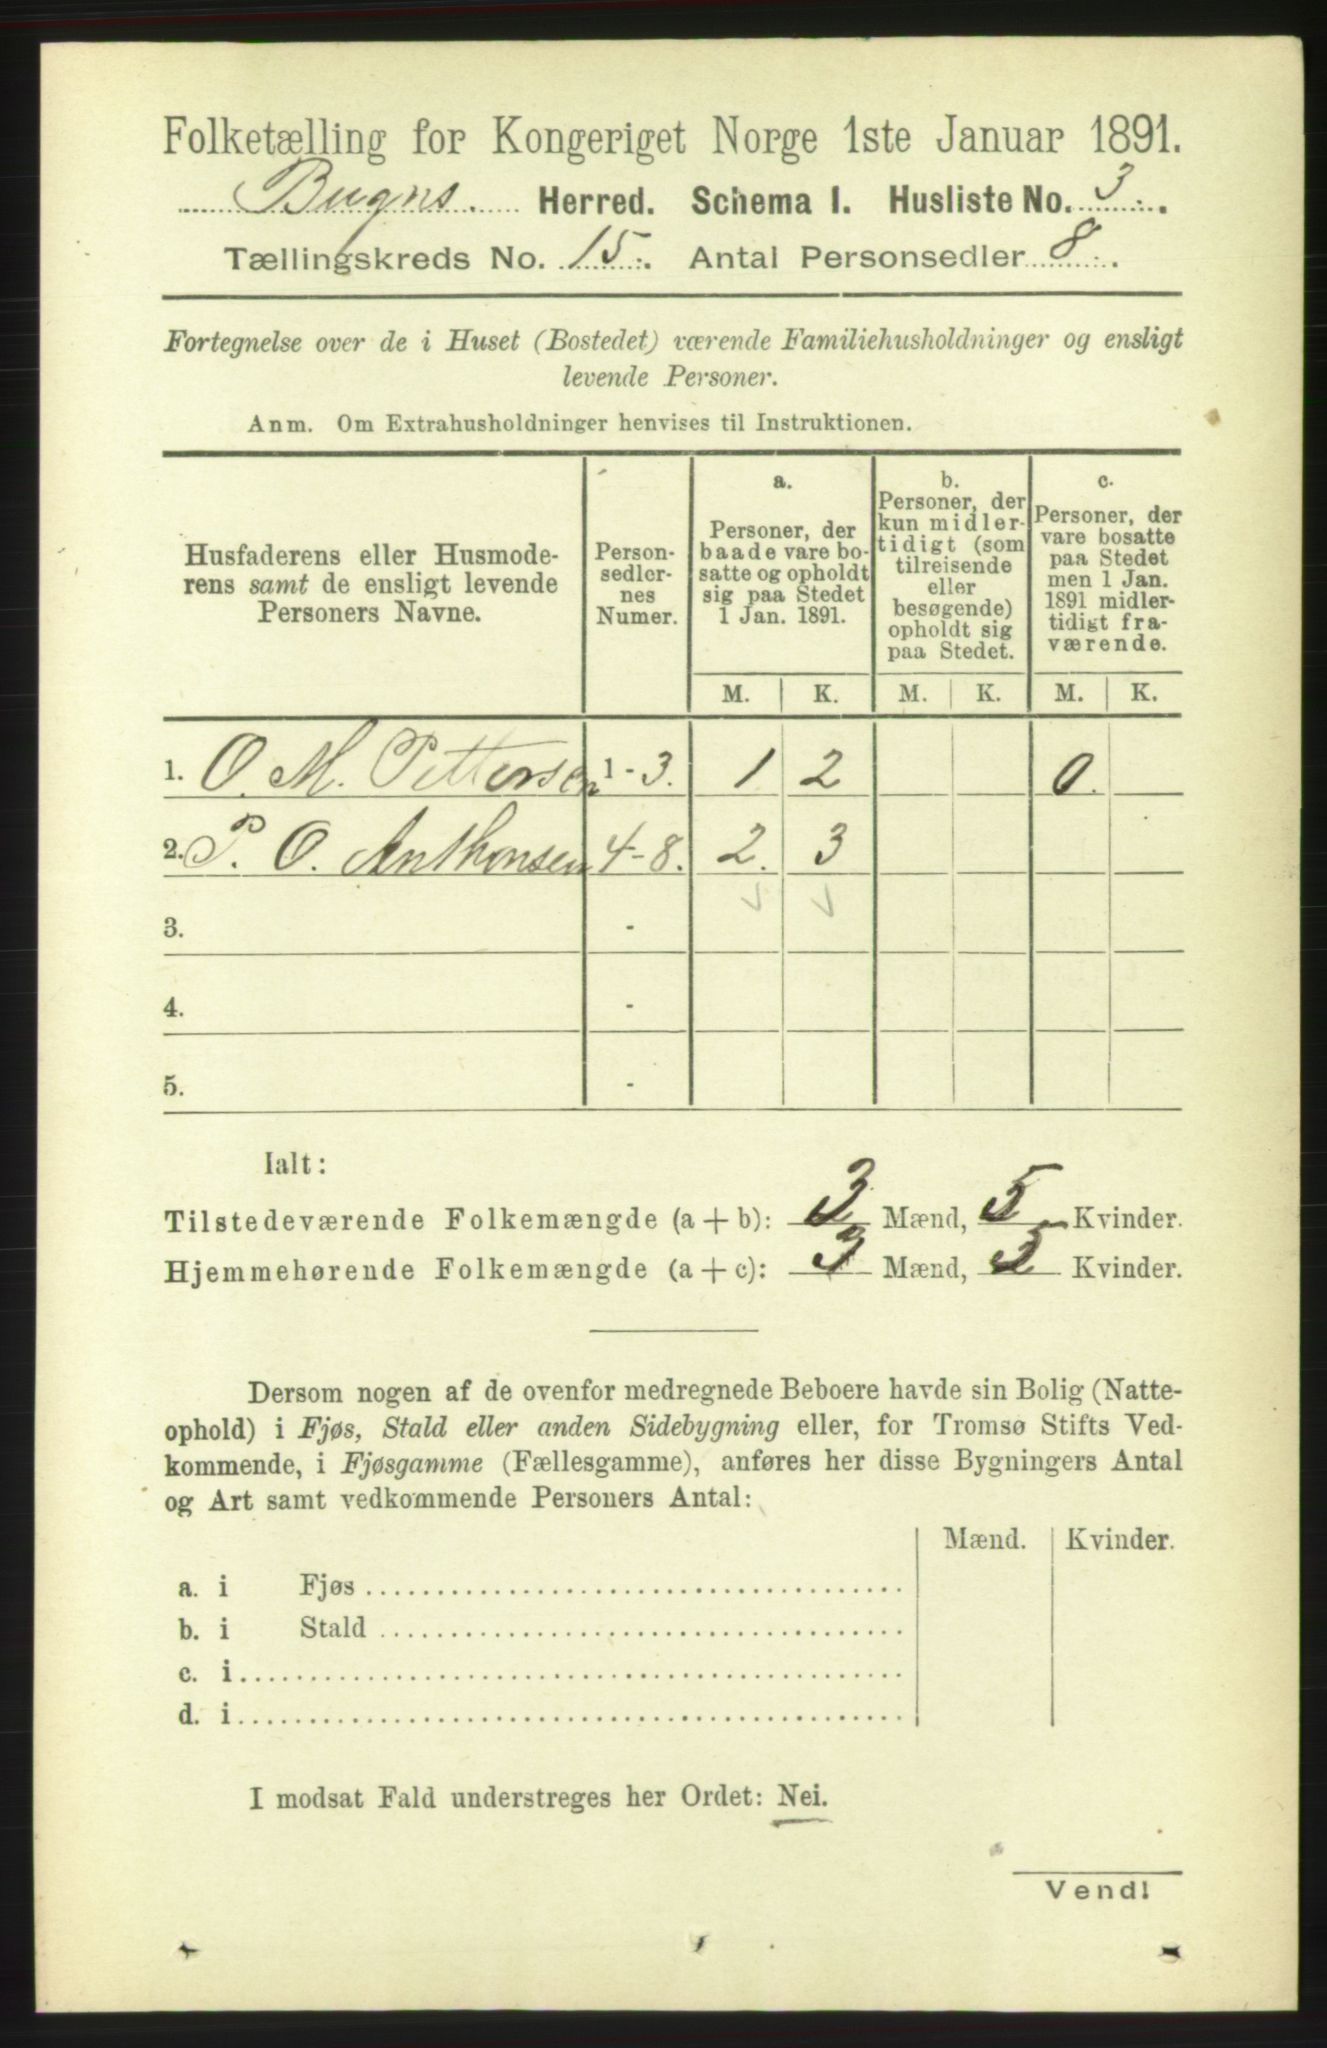 Folketælling for Kongeriget Norge 1ste Januar 1891.
Bugns Herred. Schema I. Husliste No. 3.
Tællingskreds No. 15. Antal Personsedler 8.
Fortegnelse over de i Huset (Bostedet) værende Familiehusholdninger og ensligt
levende Personer.
Anm. Om Extrahusholdninger henvises til Instruktionen.
Husfaderens eller Husmode-
rens samt de ensligt levende
Personers Navne.
Person-
sedler-
nes
Numer.
a.
Personer, der
baade vare bo-
satte og opholdt
sig paa Stedet
1 Jan. 1891.
b.
Personer, der
kun midler-
tidigt (som
tilreisende
eller
besøgende)
opholdt sig
paa Stedet.
c.
Personer, der
vare bosatte
paa Stedet
men 1 Jan.
1891 midler-
tidigt fra-
værende.
M. K. M. K. M. K.
1. O. M. Pettersen 1-3. 1 2 0.
2. P. O. Anthonsen 4-8. 2. 3
3. -
4. -
5. -
Ialt:
Tilstedeværende Folkemængde (a + b): 3 Mænd, 5 Kvinder.
Hjemmehørende Folkemængde (a + c): 3 Mænd, 5 Kvinder.
Dersom nogen af de ovenfor medregnede Beboere havde sin Bolig (Natte-
ophold) i Fjøs, Stald eller anden Sidebygning eller, for Tromsø Stifts Ved-
kommende, i Fjøsgamme (Fællesgamme), anføres her disse Bygningers Antal
og Art samt vedkommende Personers Antal:
Mænd. Kvinder.
a. i Fjøs
b. i Stald
c. i
d. i
I modsat Fald understreges her Ordet: Nei.
Vend!